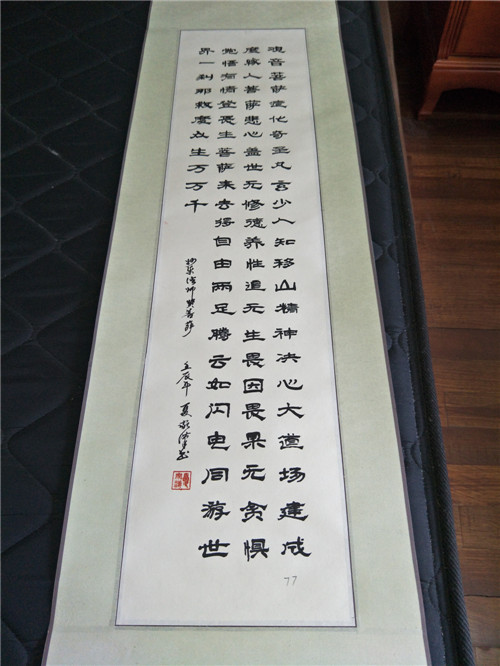 观音菩萨度化奇至凡言少人知移山精神决心大道场建成
度缘人菩萨悲心盖世无修德养性追无生畏因畏果无贪惧
觉悟有情登畏生菩萨来去自由两足腾云如闪电同游世
界一刹那救度众生万万千
菩萨
壬辰年 夏
77